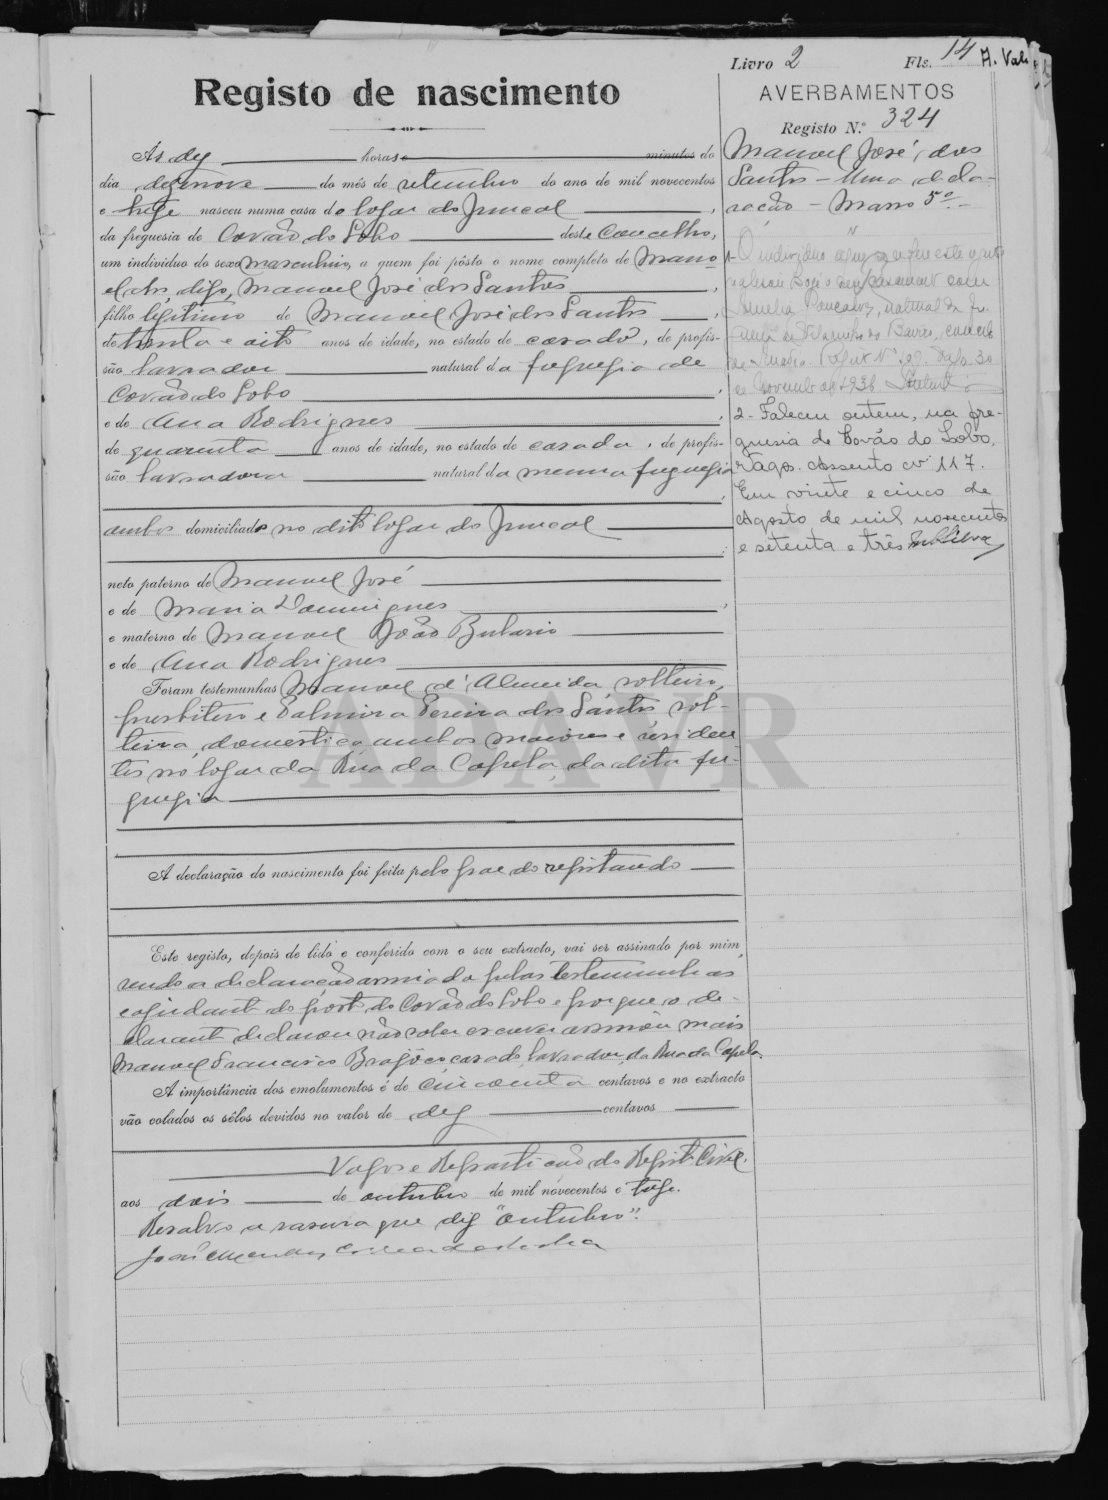 Livro 2 Fls. 14 A. Val
Registo de nascimento
AVERBAMENTOS
Registo N.º 324
Ás dez horas e minutos do
dia dezenove do mês de setembro do ano de mil novecentos
e treze nasceu numa casa do logar do Juncal,
da freguesia de Covão do Lobo deste Concelho,
um individuo do sexo masculino, a quem foi pôsto o nome completo de Mano-
el dos, digo, Manuel José dos Santos,
filho legitimo de Manuel José dos Santos,
de trinta e oito anos de idade, no estado de casado, de profis-
são lavrador natural da freguesia de
Covão do Lobo,
e de Ana Rodrigues,
de quarenta anos de idade, no estado de casada, de profis-
são lavradora natural da mesma freguesia,
ambos domiciliados no dito logar do Juncal;
neto paterno de Manuel José
e de Maria Domingues,
e materno de Manuel João
e de Ana Rodrigues
Foram testemunhas Manuel d'Almeida, solteiro,
presbitero e Palmira Pereira dos Santos, sol-
teira, domestica, ambos maiores e residen-
tes no logar da Rua da Capela, da dita fre-
guesia
A declaração do nascimento foi feita pelo pae do registando
Este registo, depois de lido e conferido com o seu extracto, vai ser assinado por mim,
sendo a declaração assinada pelas testemunhas
e ajudante do posto do Covão do Lobo e porque o de-
clarante declarou não saber escrever assinou mais
Manuel Francisco casado, lavrador, da Rua da Capela.
A importância dos emolumentos é de cincoenta centavos e no extracto
vão colados os sêlos devidos no valor de dez centavos
Vagos e Repartição do Registo Civil.
aos dois de outubro de mil novecentos e treze.
Resalvo a rasura que diz "outubro".
Manuel José dos
Santos – Uma decla-
ração – Masso 5º –
1- O individuo a que se refere este
casamento com
Amelia natural da fre-
guesia de Vilarinho do Bairro, concelho
de Anadia. 30
de Novembro de 1936
2- Faleceu ontem, na fre-
guesia de Covão do Lobo,
Vagos. Assento nº 117.
Em vinte e cinco de
Agosto de mil novecentos
e setenta e três
ADAVR